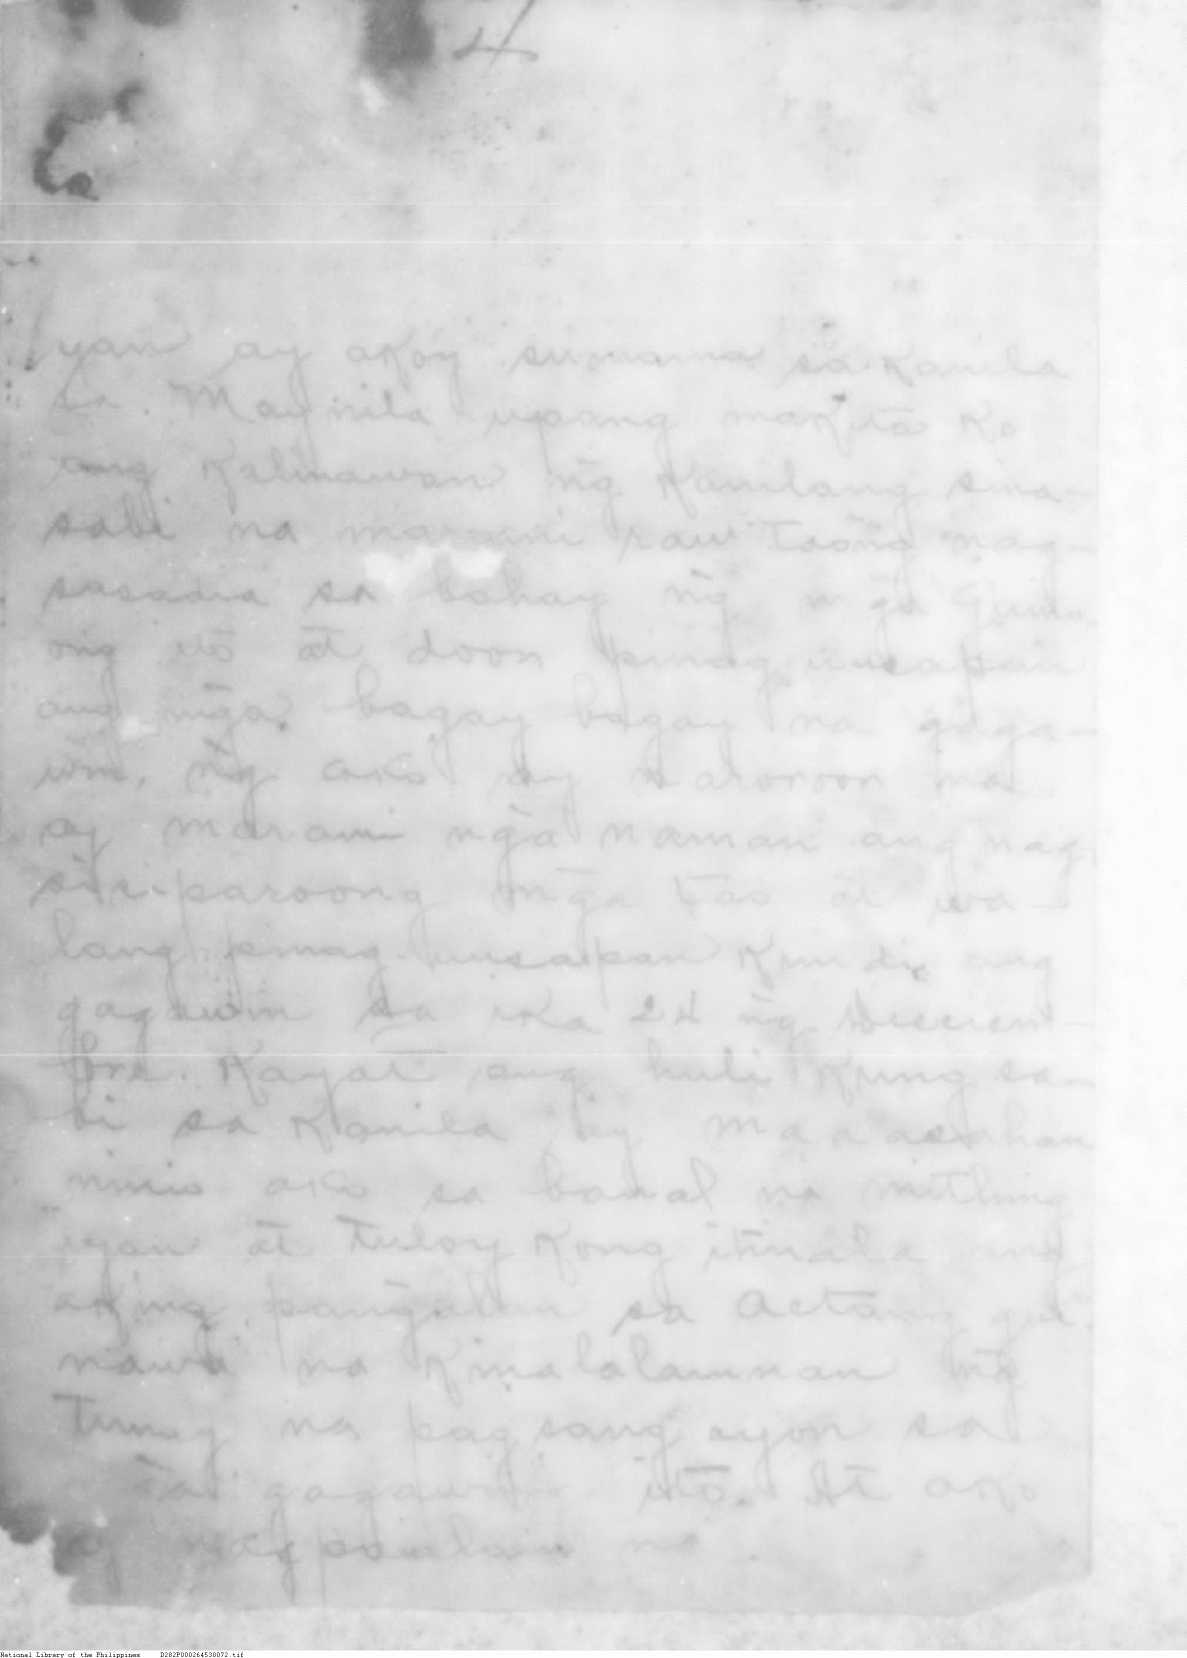 4
yan ay akoy sumama sa kanila
sa Maynila upang makita ko
ang kalinawan ng̃ kanilang sina-
sabi na marami raw taong nag-
sasadia sa bahay ng̃ mg̃a Guino-
ong ito at doon pinag uusapan
ang mg̃a bagay bagay na gaga-
win, ng̃ ako ay naroroon na
ay marami ng̃a naman ang nag
siriparoong mg̃a tao at wa-
lang pinag uusapan kundi ang
gagawin sa ika 24 ng̃ Diciem-
bre. Kayat ang huli kung sa-
bi sa kanila ay maaasahan
ninio ako sa banal na mithing
iyan at tuloy kong itinala ang
aking pang̃alan sa Actang gui-
nawa na kinalalamnan ng̃
tunay na pag sang ayon sa
gagawing ito. At ako
ay nagpaalam na
National Library of the Philippines D282P000264530072.tif